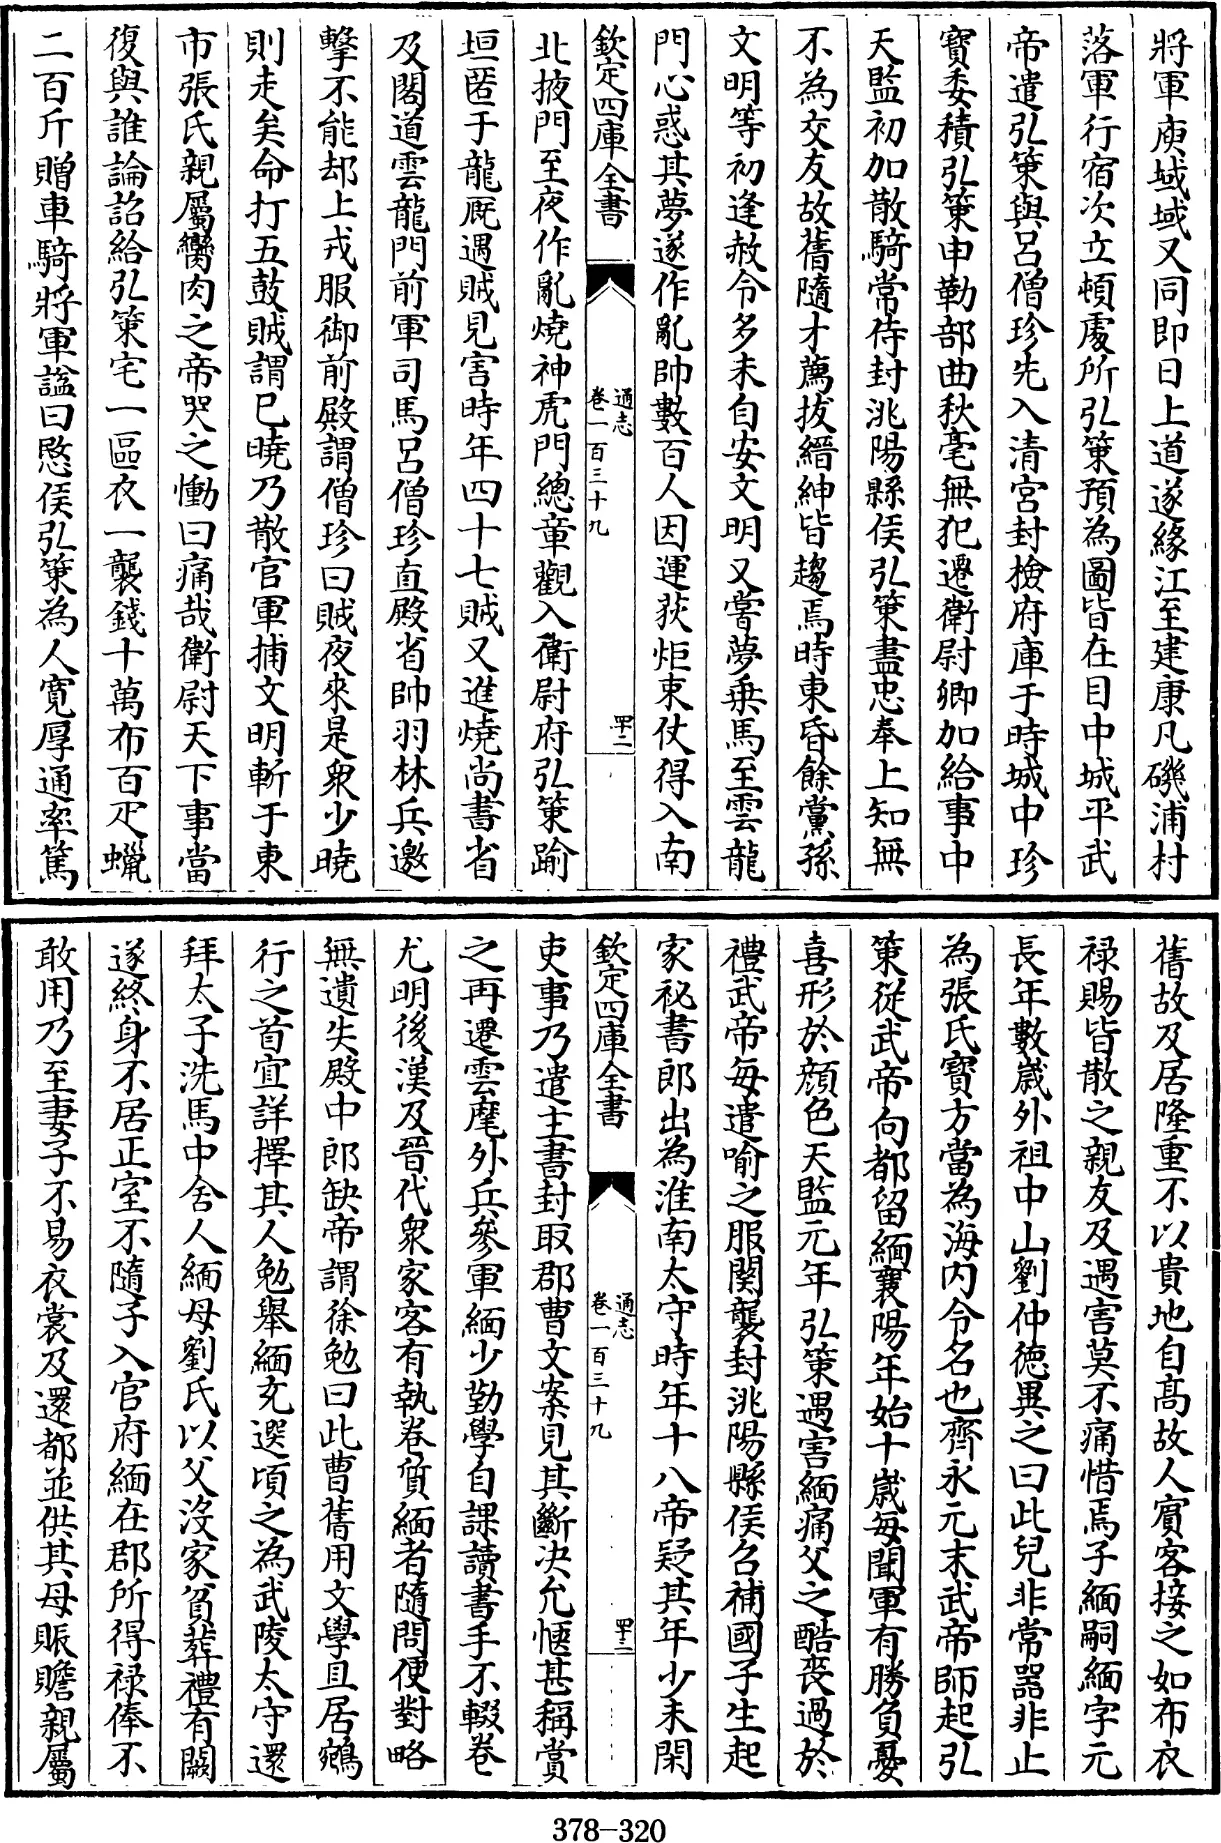 將軍庾域域又同即日上道遂緣江至建康凡磯浦村
落軍行宿次立頓處所弘策預為圖皆在目中城平武
帝遣弘策與呂僧珍先入清宮封檢府庫于時城中珍
寶委積弘策申勒部曲秋毫無犯遷衛尉卿加給事中
天監初加散騎常侍封洮陽縣侯弘策盡忠奉上知無
不為交友故舊隨才薦拔縉紳皆趨焉時東昏餘黨孫
文明等初逢赦令多未自安文明又嘗夢乗馬至雲龍
門心惑其夢遂作亂帥數百人因運荻炬束仗得入南
欽定四庫全書
通志
卷一百三十九
四十二
北掖門至夜作亂燒神虎門總章觀入衛尉府弘策踰
垣匿于龍廐遇賊見害時年四十七賊又進燒尚書省
及閣道雲龍門前軍司馬呂僧珍直殿省帥羽林兵邀
擊不能却上戎服御前殿謂僧珍曰賊夜來是衆少曉
則走矣命打五鼓賊謂巳曉乃散官軍捕文明斬于東
市張氏親屬臠肉之帝哭之慟曰痛哉衛尉天下事當
復與誰論詔給弘策宅一區衣一襲錢十萬布百疋蠟
二百斤贈車騎將軍諡曰愍侯弘策為人寛厚通率篤
舊故及居隆重不以貴地自髙故人賓客接之如布衣
禄賜皆散之親友及遇害莫不痛惜焉子緬嗣緬字元
長年數嵗外祖中山劉仲德異之曰此兒非常器非止
為張氏寳方當為海内令名也齊永元末武帝師起弘
策從武帝向都留緬襄陽年始十嵗每聞軍有勝負憂
喜形於顔色天監元年弘策遇害緬痛父之酷喪過於
禮武帝每遣喻之服闋襲封洮陽縣侯召補國子生起
家祕書郎出為淮南太守時年十八帝疑其年少未閑
欽定四庫全書
通志
卷一百三十九
四十三
吏事乃遣主書封取郡曹文案見其斷决允愜甚稱賞
之再遷雲麾外兵參軍緬少勤學自課讀書手不輟卷
尤明後漢及晉代衆家客有執卷質緬者隨問便對略
無遺失殿中郎缺帝謂徐勉曰此曹舊用文學且居鵷
行之首宜詳擇其人勉舉緬充選頃之為武陵太守還
拜太子洗馬中舍人緬母劉氏以父沒家貧葬禮有闕
遂終身不居正室不隨子入官府緬在郡所得禄俸不
敢用乃至妻子不易衣裳及還都並供其母賑贍親屬
378-320